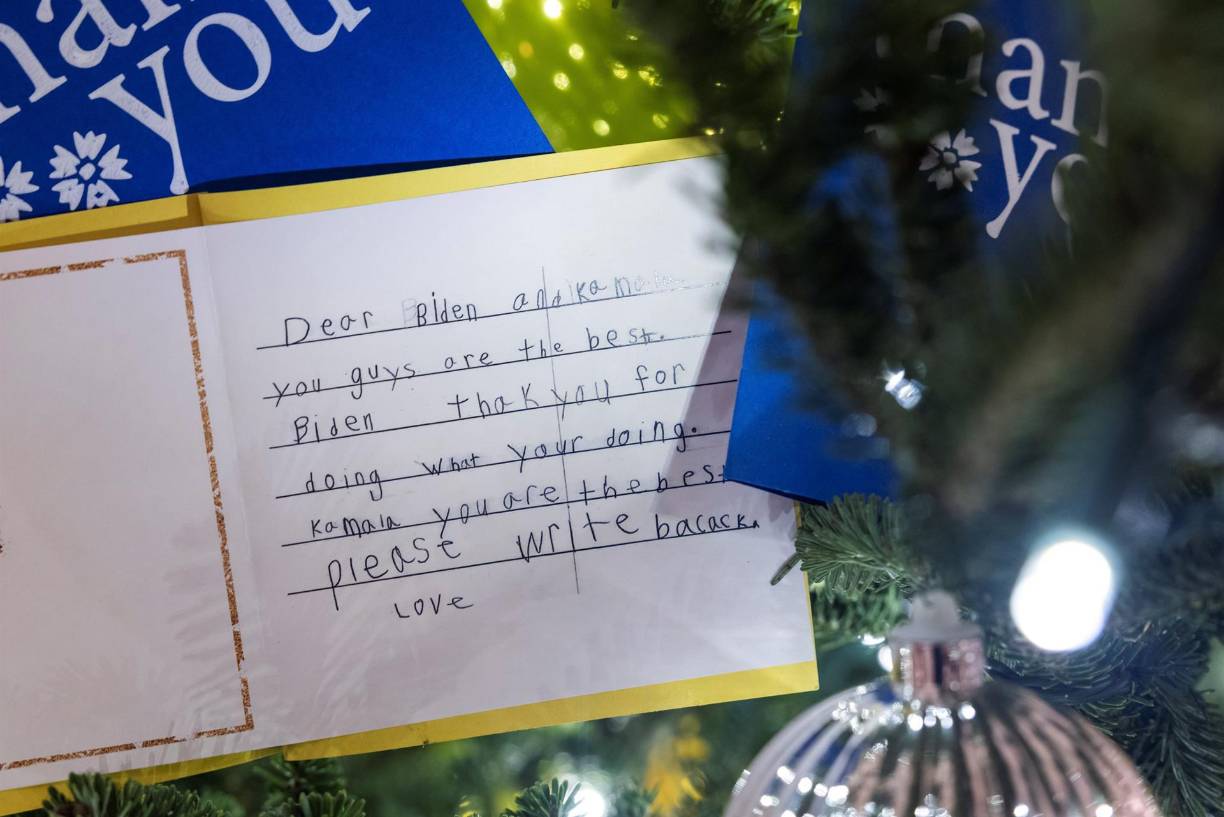 you
Dear Biden and Kamala
you guys are the best.
Biden thak you for
doing what your doing.
Kamala you are the best
please write bacack.
Love